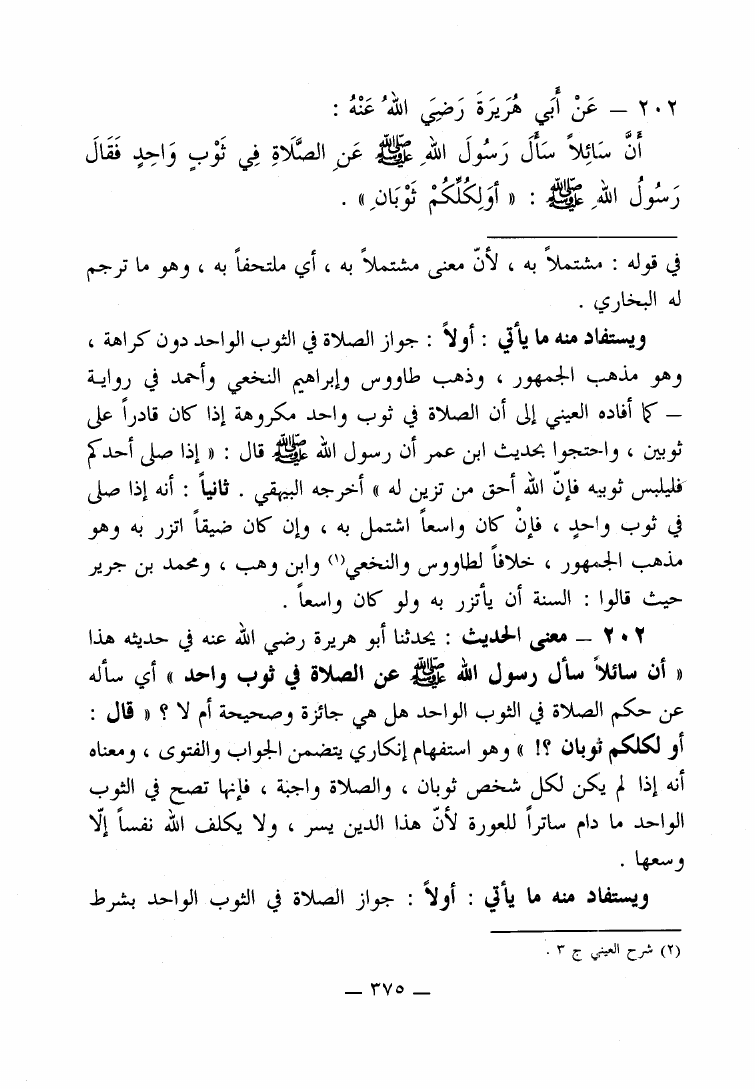 ٢٠٢ – عَنْ أَبِي هُرَيرَةَ رَضِيَ اللهُ عَنْهُ :
أَنَّ سَائِلاً سَأَلَ رَسُولَ اللهِ ﷺ عَنِ الصَّلَاةِ فِي ثَوْبٍ وَاحِدٍ فَقَالَ
رَسُولُ اللهِ ﷺ : « أَوَلِكُلِّكُمْ ثَوْبَانِ » .
في قوله : مشتملاً به ، لأنّ معنى مشتملاً به ، أي ملتحفاً به ، وهو ما ترجم
له البخاري .
ويستفاد منه ما يأتي : أولاً : جواز الصلاة في الثوب الواحد دون كراهة ،
وهو مذهب الجمهور ، وذهب طاووس وإبراهيم النخعي وأحمد في رواية
– كما أفاده العيني إلى أن الصلاة في ثوب واحد مكروهة إذا كان قادراً على
ثوبين ، واحتجوا بحديث ابن عمر أن رسول الله ﷺ قال : « إذا صلى أحدكم
فليلبس ثوبيه فإنّ الله أحق من تزين له » أخرجه البيهقي . ثانياً : أنه إذا صلى
في ثوب واحدٍ ، فإنْ كان واسعاً اشتمل به ، وإن كان ضيقاً اتزر به وهو
مذهب الجمهور ، خلافاً لطاووس والنخعي(١) وابن وهب ، ومحمد بن جرير
حيث قالوا : السنة أن يأتزر به ولو كان واسعاً .
٢٠٢ – معنى الحديث : يحدثنا أبو هريرة رضي الله عنه في حديثه هذا
« أن سائلاً سأل رسول الله ﷺ عن الصلاة في ثوب واحد » أي سأله
عن حكم الصلاة في الثوب الواحد هل هي جائزة وصحيحة أم لا ؟ « قال :
أو لكلكم ثوبان ؟! » وهو استفهام إنكاري يتضمن الجواب والفتوى ، ومعناه
أنه إذا لم يكن لكل شخص ثوبان ، والصلاة واجبة ، فإنها تصح في الثوب
الواحد ما دام ساتراً للعورة لأنّ هذا الدين يسر ، ولا يكلف الله نفساً إلّا
وسعها .
ويستفاد منه ما يأتي : أولاً : جواز الصلاة في الثوب الواحد بشرط
(٢) شرح العيني ج ٣ .
– ٣٧٥ –